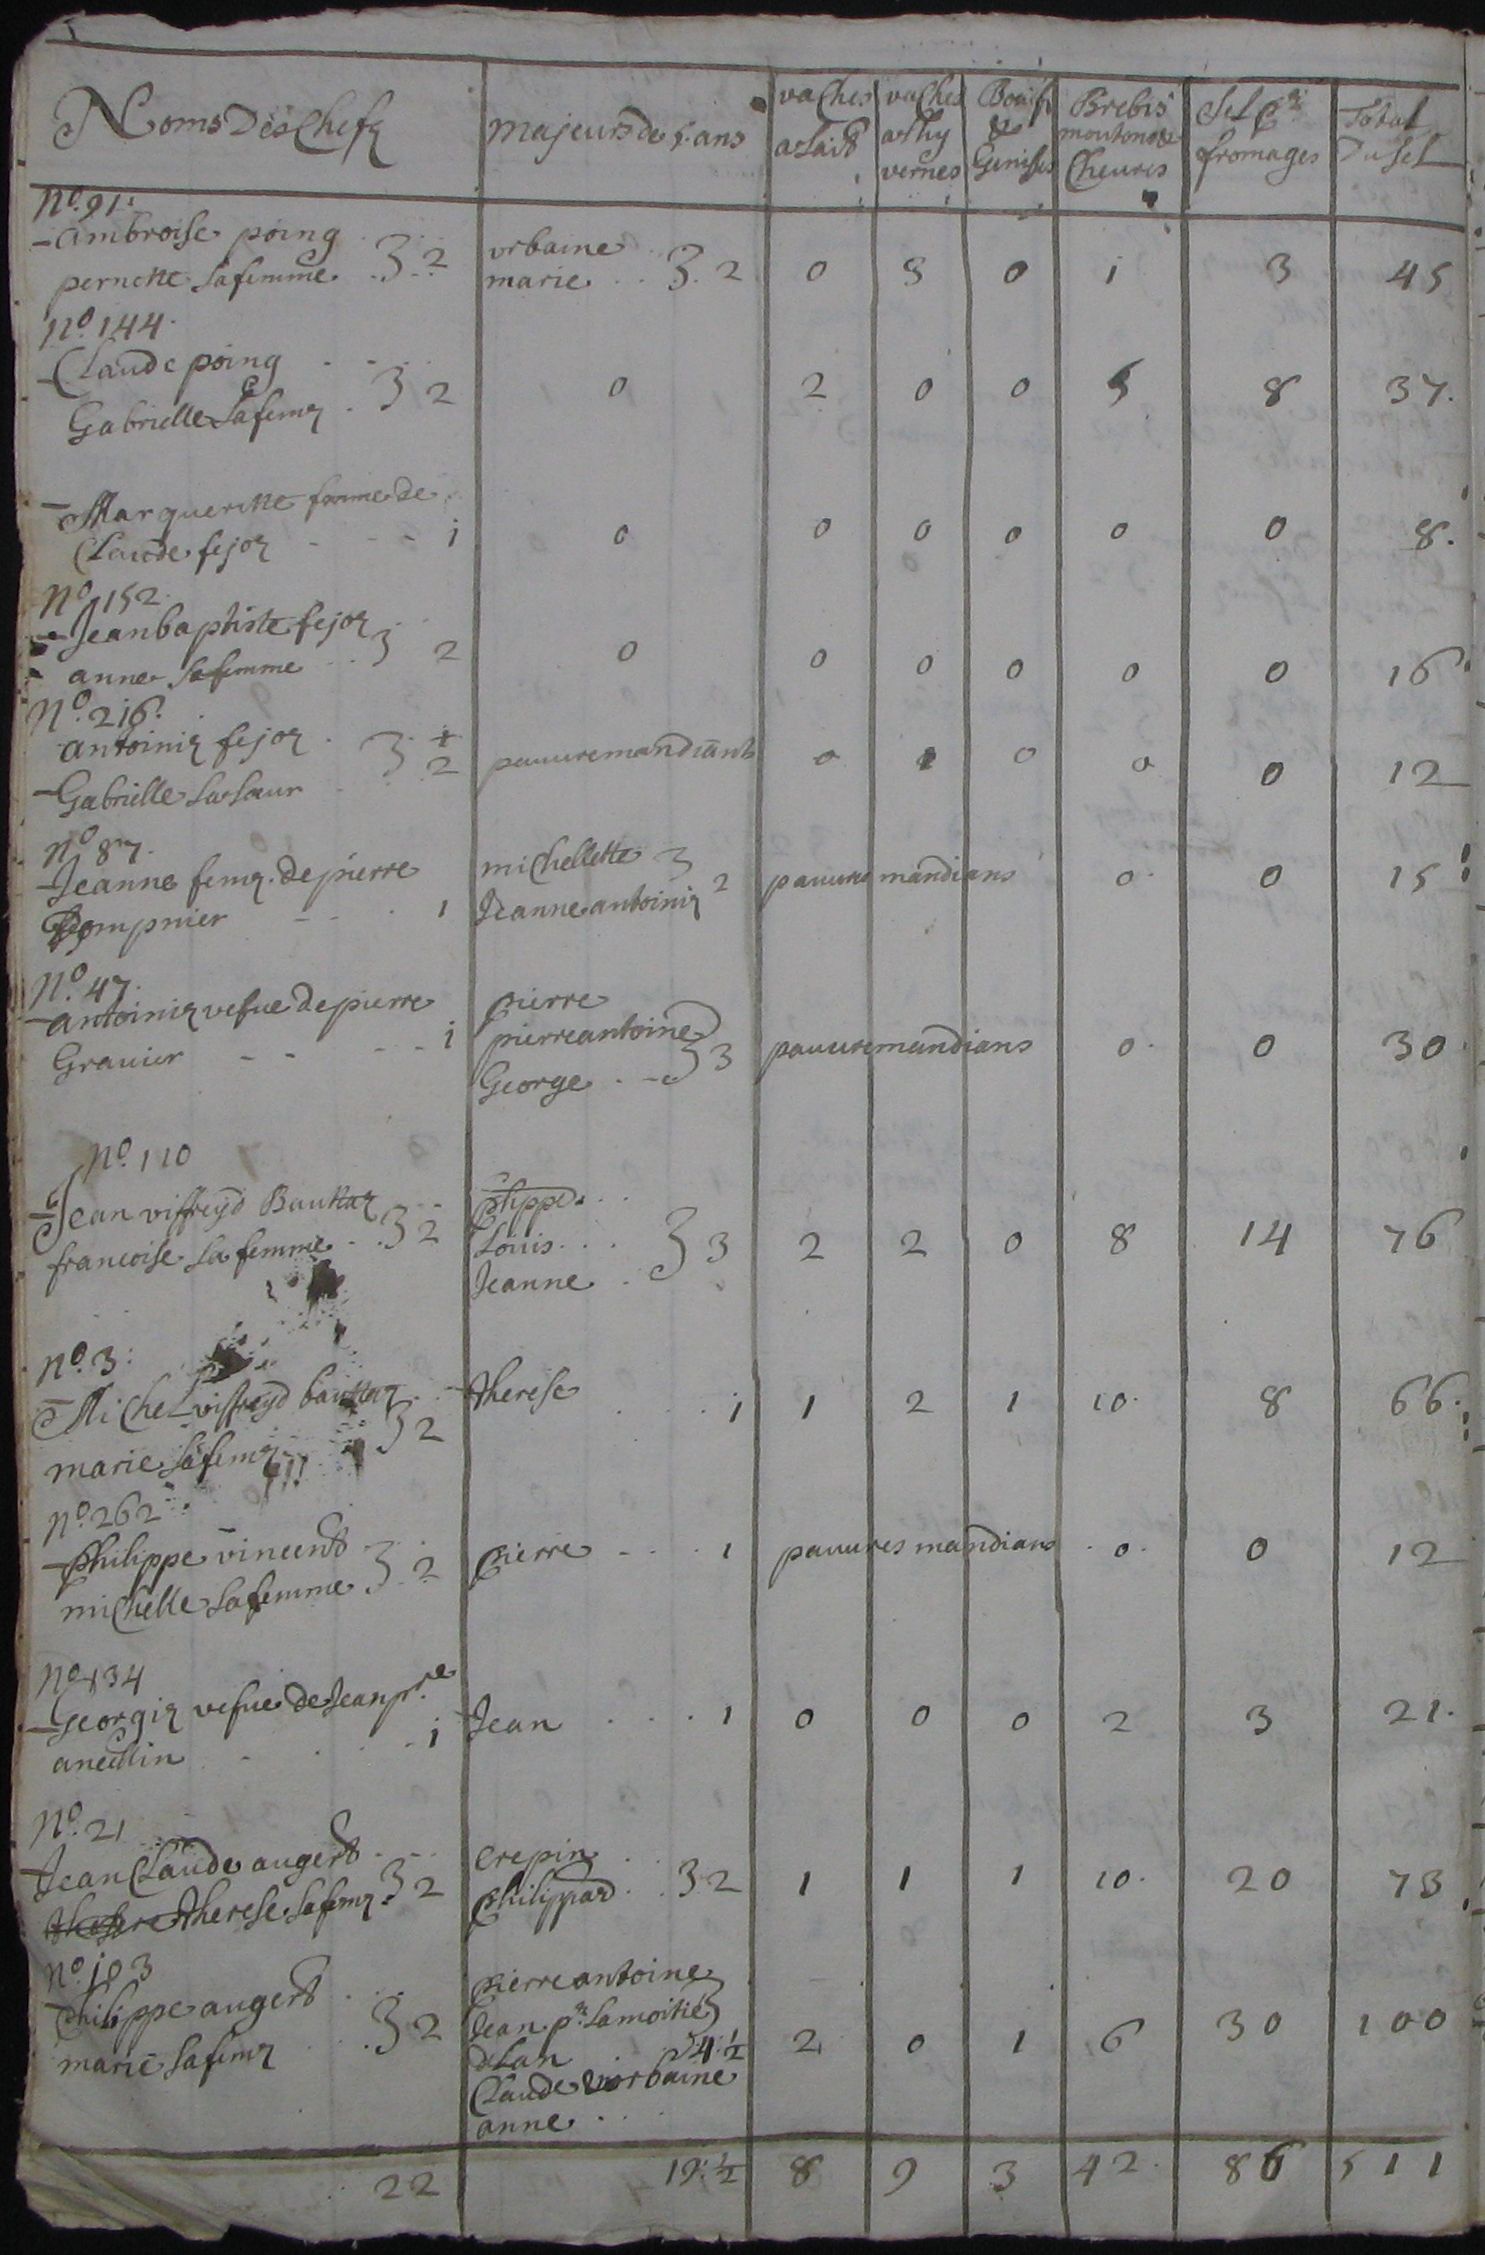 Noms Des Chefz
majeurs de 5. ans
vaches a Lait
vaches athy vernes
Boeufs & Genises
Brebis moutons & Cheures
Sel pr. fromages
Total Du sel
No. 91.
ambroise poing
pernette sa femme 2
urbaine
marie 2 0 3 0 1 3 45
No. 144.
Claude poing
Gabrielle sa femz 2 0 2 0 0 5 8 37.
Margueritte femme de
Claude fejoz 1 0 0 0 0 0 0 8.
No. 152.
Jean baptiste fejoz
anne sa femme 2 0 0 0 0 0 0 16
No. 216.
antoiniz fejoz
Gabrielle sa saeur 2 pauure mandiant 0 1 0 0 0 12
No. 87.
Jeanne femz. de pierre
Dompnier 1
michellette
Jeanne antoiniz 2 pauure mandians 0. 0 15
No. 47.
antoiniz vefue de pierre
Grauier 1
pierre
pierre antoine
George 3 pauure mandians 0. 0 30
No. 110
Jean viffreyd Bauttaz
francoise sa femme 2
phippe
Louis
Jeanne 3 2 2 0 8 14 76
No. 3.
Michel viffreyd bauttaz
marie sa femz 2
therese 1 1 2 1 10. 8 66.
No. 262
Philippe vincend
michelle sa femme 2
pierre 1 pauures mandians 0. 0 12
No. 134
Georgiz vefue de Jean pre.
anectlin 1
Jean 1 0 0 0 2 3 21.
No. 21
Jean Claude augerd
therese sa femz 2
crepin
Philippad 2 1 1 1 10. 20 73
No. 103
Philippe augerd
marie sa femz 2
pierre antoine
Jean pr. La moitie
d Lan 4 1/2
Claude urbaine
anne 2 0 1 6 30 100
22 19. 1/2 8 9 3 42. 86 511